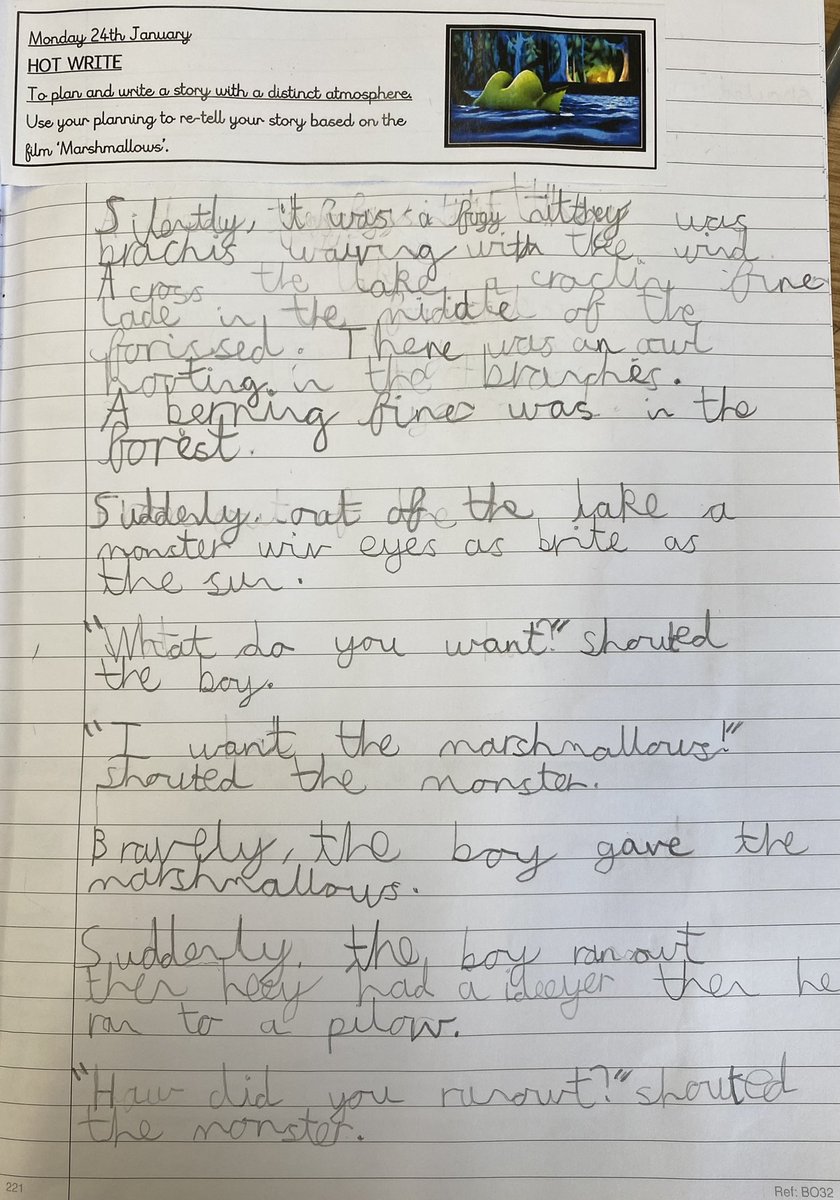 Monday 24th January
HOT WRITE
To plan and write a story with a distinct atmosphere.
Use your planning to re-tell your story based on the
film 'Marshmallows'.
Silently, it was a was
brachis waiving with the wind.
Across the lake, a craclin fine
lade in the middle of the
forissed. There was an owl
hooting in the branches.
A berning fine was in the
forest.
Suddenly, out of the lake a
monster wiv eyes as brite as
the sun.
"What do you want?" shouted
the boy.
"I want the marshmallows!"
shouted the monster.
Bravely, the boy gave the
marshmallows.
Suddenly, the boy ran out
then had a ideeyer then he
ran to a pilow.
"How did you runout?" shouted
the monster.
221
Ref: BO32